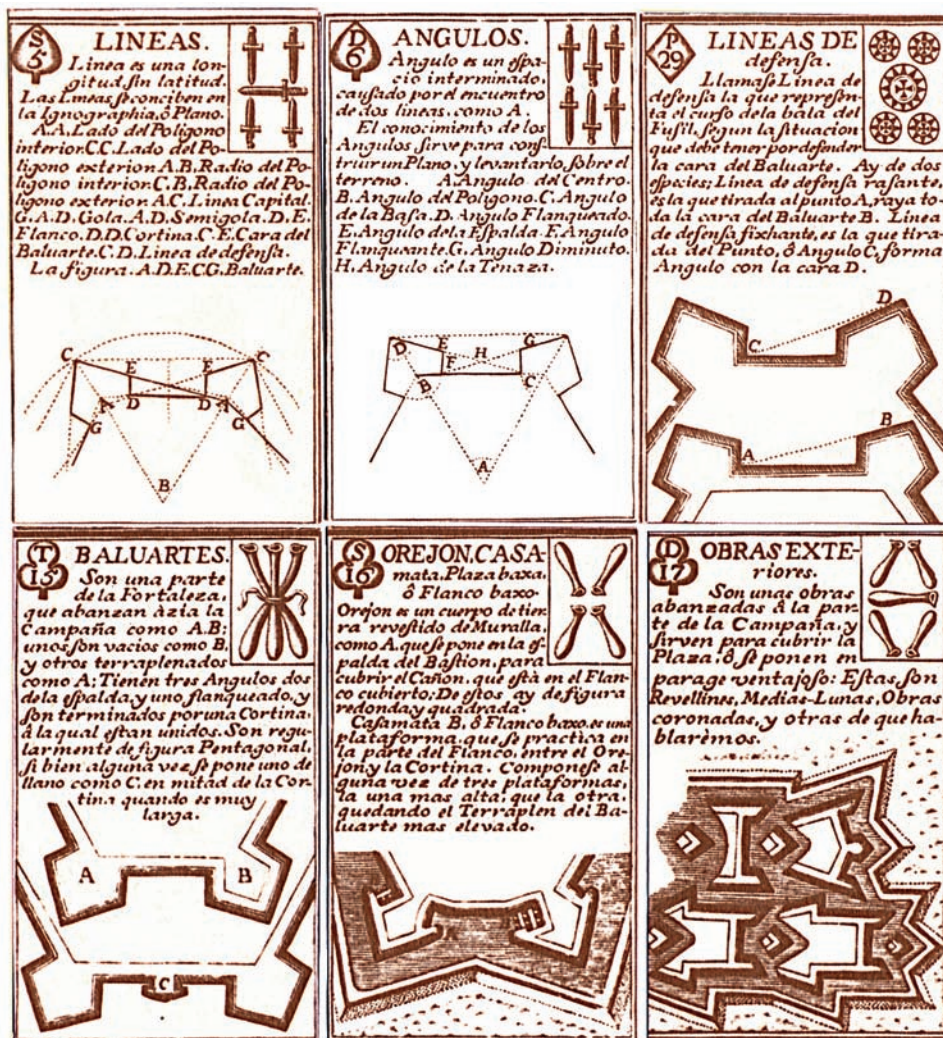 S
5
LINEAS.
Linea es una lon-
gitud sin latitud.
Las Lineas se conciben en
la Ignographia, ô Plano.
A.A. Lado del Poligono
interior. C.C. Lado del Po-
ligono exterior. A.B. Radio del Po-
ligono interior. C.B. Radio del Po-
ligono exterior. A.C. Linea Capital.
G.A.D. Gola. A.D. Semigola. D.E.
Flanco. D.D. Cortina. C.E. Cara del
Baluarte. C.D. Linea de defensa.
La figura. A.D.E.C.G. Baluarte.
C
C
E
E
A
D
D
A
G
G
B
D
6
ANGULOS.
Angulo es un espa-
cio interminado,
causado por el encuentro
de dos lineas, como A.
El conocimiento de los
Angulos sirve para cons-
truir un Plano, y levantarlo, sobre el
terreno. A. Angulo del Centro.
B. Angulo del Poligono. C. Angulo
de la Basa. D. Angulo Flanqueado.
E. Angulo de la Espalda. F. Angulo
Flanqueante. G. Angulo Diminuto.
H. Angulo de la Tenaza.
D
E
H
G
F
B
C
A
P
29
LINEAS DE
defensa.
Llamase Linea de
defensa la que represen-
ta el curso de la bala del
Fusil, segun la situacion
que debe tener por defender
la cara del Baluarte. Ay de dos
especies; Linea de defensa rasante,
es la que tirada al punto A, raya to-
da la cara del Baluarte B. Linea
de defensa fixhante, es la que tira-
da del Punto, ô Angulo C, forma
Angulo con la cara D.
D
C
B
A
T
15
BALUARTES.
Son una parte
de la Fortaleza,
que abanzan àzia la
Campaña como A.B;
unos son vacios como B,
y otros terraplenados
como A; Tienen tres Angulos dos
de la espalda, y uno flanqueado, y
son terminados por una Cortina,
â la qual estan unidos. Son regu-
larmente de figura Pentagonal,
si bien alguna vez se pone uno de
llano como C, en mitad de la Cor-
tina quando es muy
larga.
A
B
C
S
16
OREJON, CASA-
mata, Plaza baxa,
ô Flanco baxo
Orejon es un cuerpo de tier-
ra revestido de Muralla,
como A, que se pone en la es-
palda del Bastion, para
cubrir el Cañon, que està en el Flan-
co cubierto; De estos ay de figura
redonda y quadrada.
Casamata B, ô Flanco baxo, es una
plataforma, que se practica en
la parte del Flanco, entre el Ore-
jon y la Cortina. Componese al-
guna vez de tres plataformas,
la una mas alta, que la otra,
quedando el Terraplen del Ba-
luarte mas elevado.
D
17
OBRAS EXTE-
riores.
Son unas obras
abanzadas â la par-
te de la Campaña, y
sirven para cubrir la
Plaza, ô se ponen en
parage ventajoso: Estas, son
Revellines, Medias-Lunas, Obras
coronadas, y otras de que ha-
blarèmos.